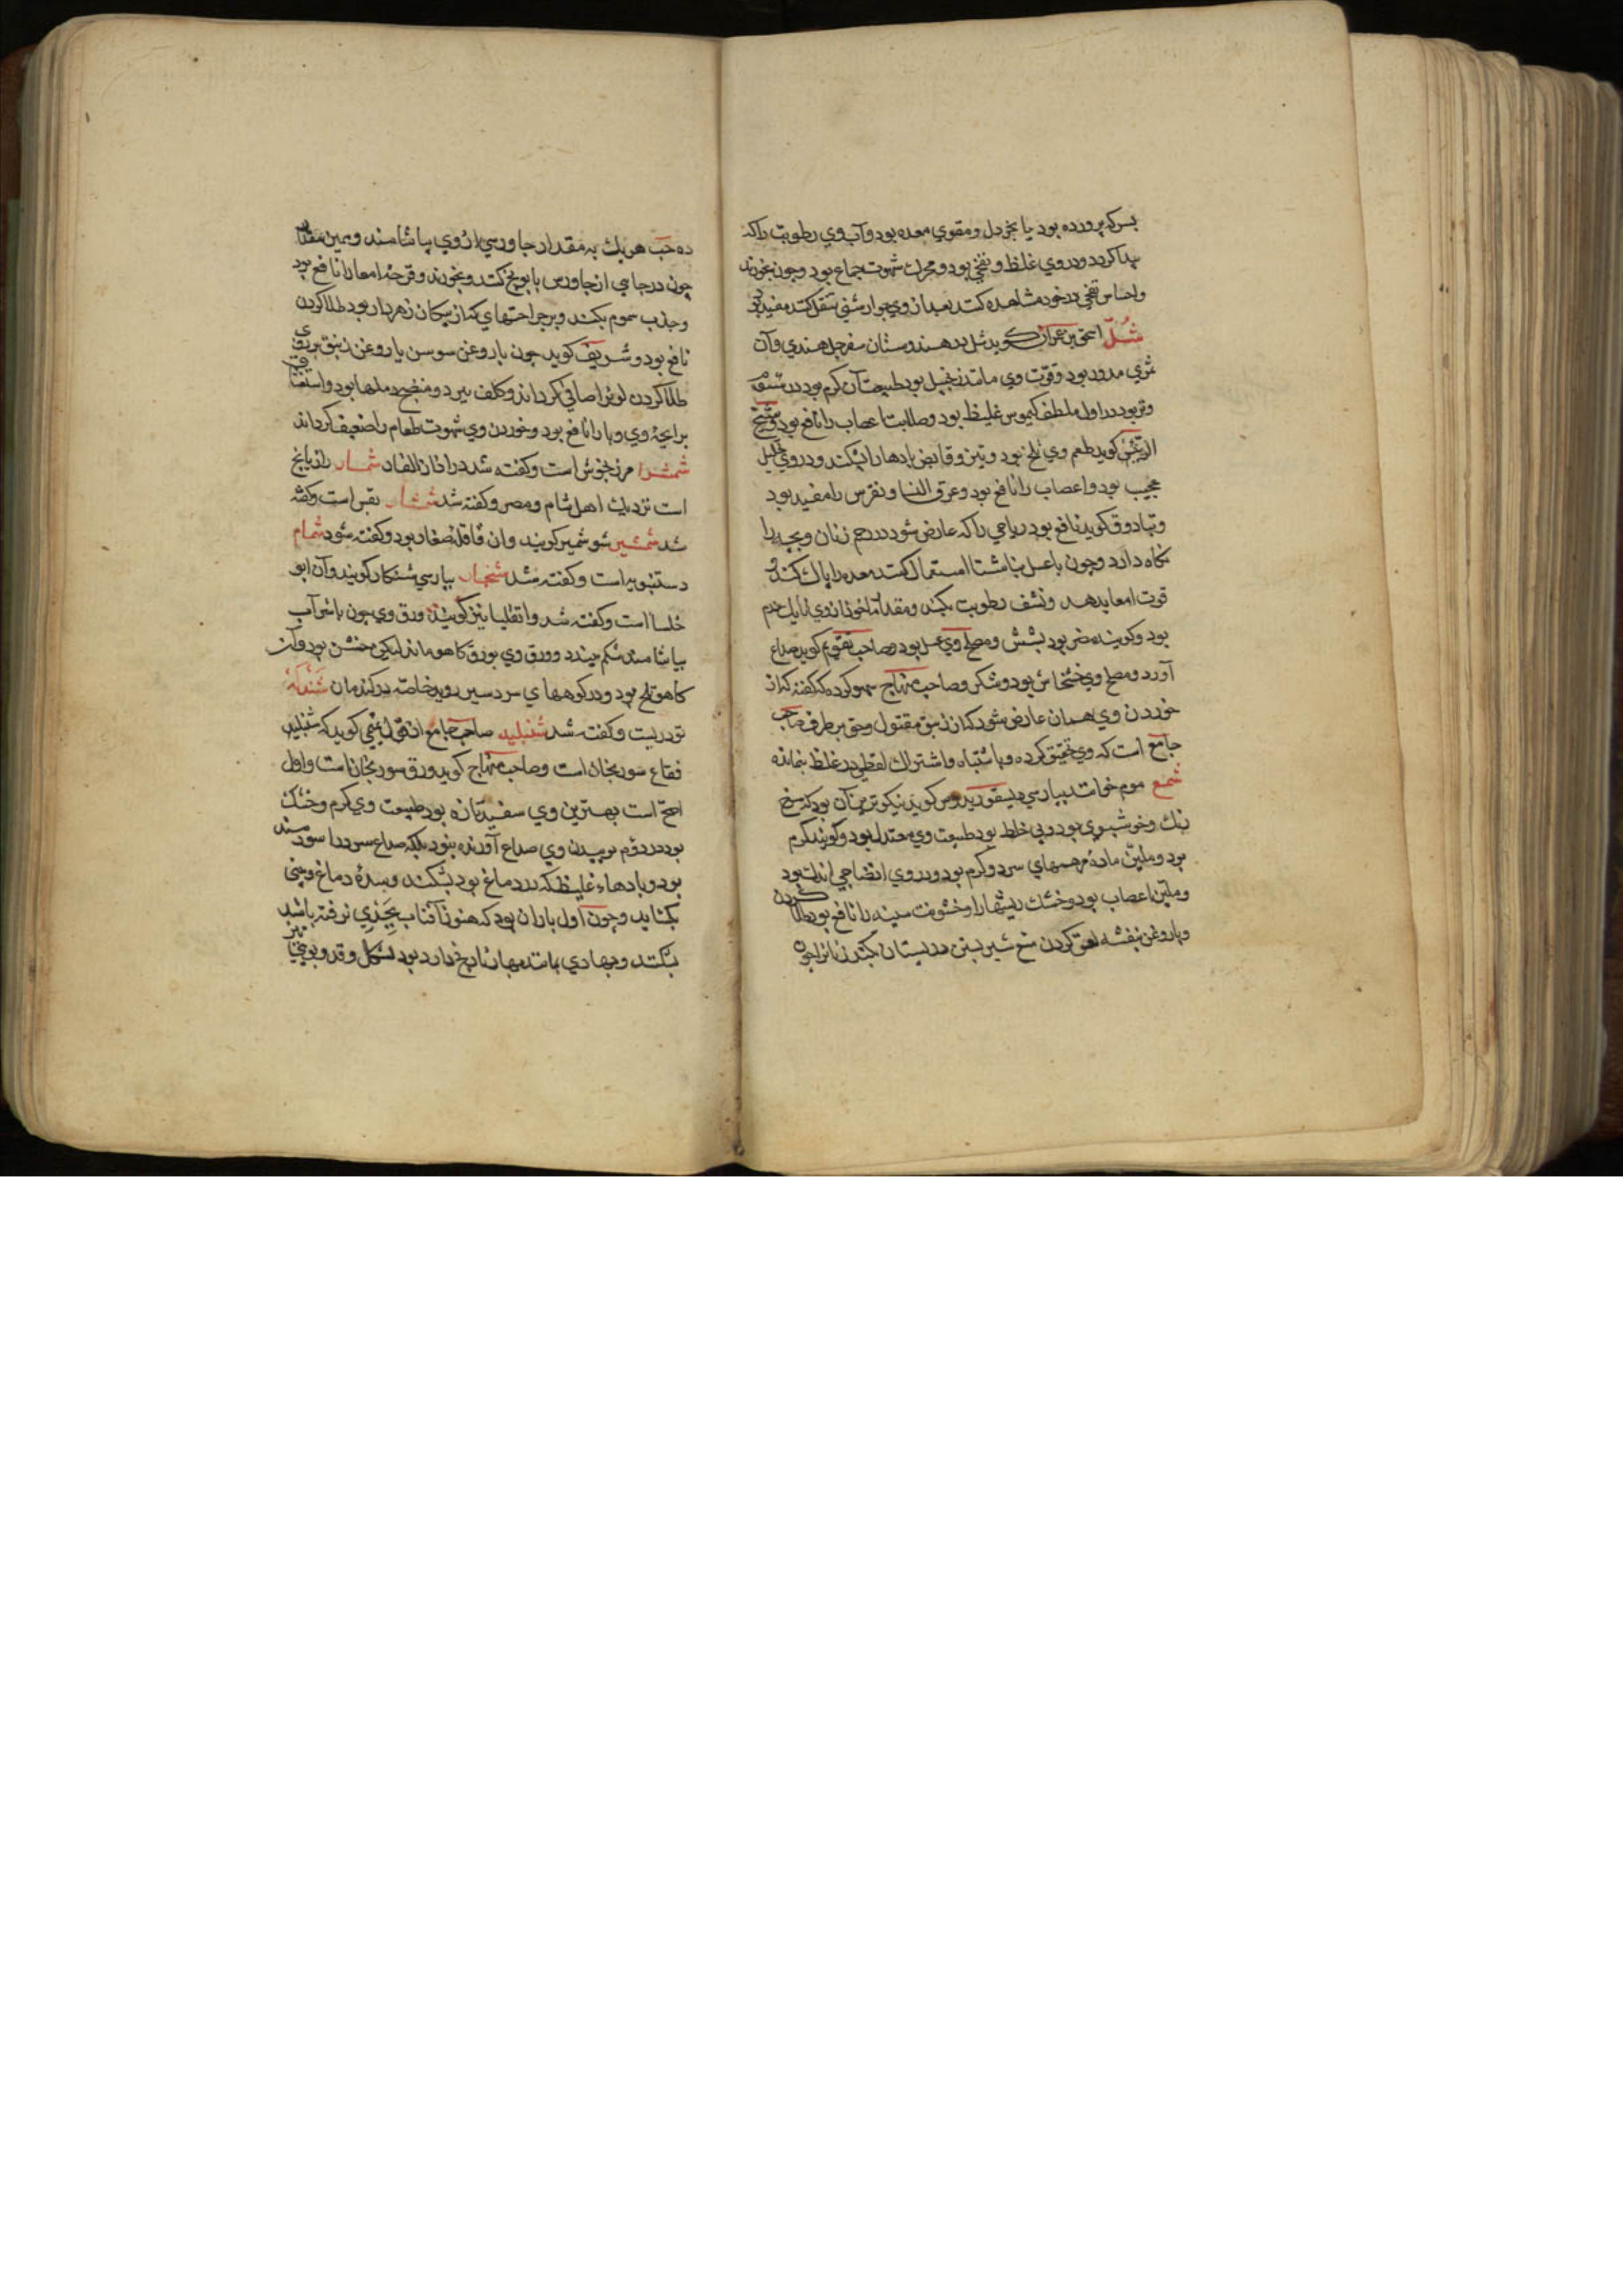 بسرکه پرورده بود یا بخردل و مقوي معده بود وآب وي رطوبت راکه
پیدا کردد ودروي غلظ و نفخي بود و محرك شهوت جماع بود وجون بخورند
واحساس نفخي درخود مشاهده کنند بعد از وي جوارشني تنقل کنند مفید بود
شُلّ اسحق بن عمران کوید شل بدر هندوستان سفرجل هندي وآن
ثمري مدور بود وقوت وي مانند زنجبیل بود طبیعت آن کرم بود در
وتر بود در اول ملطف کیموس غلیظ بود وصلابت اعصاب را نافع بود وشیخ
الرئیس کوید طعم وي تلخ بود وتیز وقابض بادها را بشکند ودروي تحلیل
عجیب بود واعصاب را نافع بود وعرق النسا ونقرس را مفید بود
وتیادوق کوید نافع بود ریاحي راکه عارض شود در رحم زنان وبچه را
نکاه دارد وجون باعسل بناشتا استعمال کنند معده را پاك کند و
قوت امعا بدهد ونشف رطوبت بکند ومقدار ماخوذ از وي تا یك درم
بود وکویند مضر بود بشش ومصلح وي عسل بود وصاحب تقویم کوید صداع
آورد ومصلح وي خشخاش بود وشکر وصاحب منهاج سهو کرده که کفته که از
خوردن وي همان عارض شود که از زیبق مقتول وحق بر طرف صاحب
جامع است که وي تحقیق کرده و باشتباه واشتراك لفظي در غلط نمانده
شمع موم خوانند بپارسي کوید نیکوترین آن بود که سرخ
رنك وخوشبوي بود وبي خلط بود طبیعت وي معتدل بود وکویند کرم
بود وملین ماده مرهمهاي سرد وکرم بود ودروي انضاجي اندك بود
وملین اعصاب بود وخشك ریشها را وخشونت سینه را نافع بود طلا کردن
وباروغن بنفشه لعق کردن منع شیر بستن در پستان بکند زنانرا جون
ده حب هریك به مقدار جاورسي از وي بیاشامند وهمین مقدار
چون درجامي از جاورس بابونج کنند وبخورند وقرحه امعا را نافع بود
وجذب سموم بکند وبرجراحتهاي که از پیکان زهردار بود طلا کردن
نافع بود وشریف کوید چون باروغن سوسن یا روغن زنبق بر روي
طلا کردن لونرا صافي کرداند وکلف ببرد ومنضج دملها بود واستنشاق
برایحۀ وي وبا را نافع بود وخوردن وي شهوت طعام را ضعیف کرداند
شمشرا مرزنجوش است وکفته شد در اذان الفار شمار رازیانج
است نزدیك اهل شام ومصر وکفته شد شمشار بقس است وکفته
شد شمشیر شوشمیر کویند وان قاقله صغار بود وکفته شود شمام
دستنبویه است وکفته شد شنجار بپارسي شنکار کویند وآن ابو
خلسا است وکفته شد وانقلیا نیز کویند ورق وي چون باشراب
بیاشامند شکم ببندد وورق وي بورق کاهو ماند لیکن خشن بود وآن
کاهو تلخ بود ودر کوههاي سردسیر روید خاصه در کندمان شندله
تودریست وکفته شد شنبلید صاحب جامع از قول تمیمي کوید که شنبلید
فقاع سورنجان است وصاحب منهاج کوید ورق سورنجان است واول
اصح است بهترین وي سفید تازه بود طبیعت وي کرم وخشك
بود در دوم بوییدن وي صداع آورنده بود بلکه صداع سرد را سودمند
بود وبادهاء غلیظ که در دماغ بود بشکند وسدۀ دماغ وبیني
بکشاید وچون اول باران بود که هنوز آفتاب بجدي نرفته باشد
بشکند وبهاري مانند بهار نارنج دارد بود بشکل وقد وبوي نیز